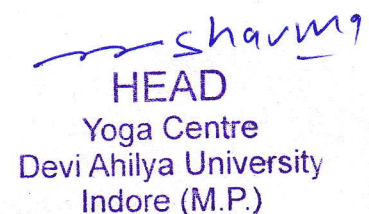 sharma
HEAD
Yoga Centre
Devi Ahilya University
Indore (M.P.)